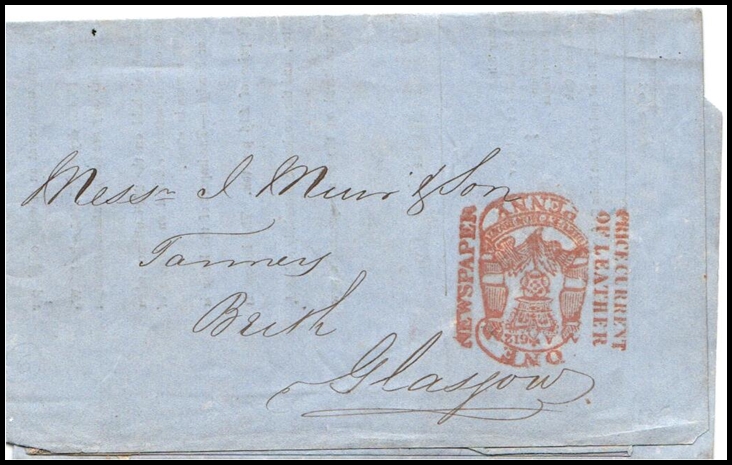 Messrs J Muir & Son
Tanners
Beith
Glasgow
NEWSPAPER
PENNY
ONE
PRICE CURRENT
OF LEATHER